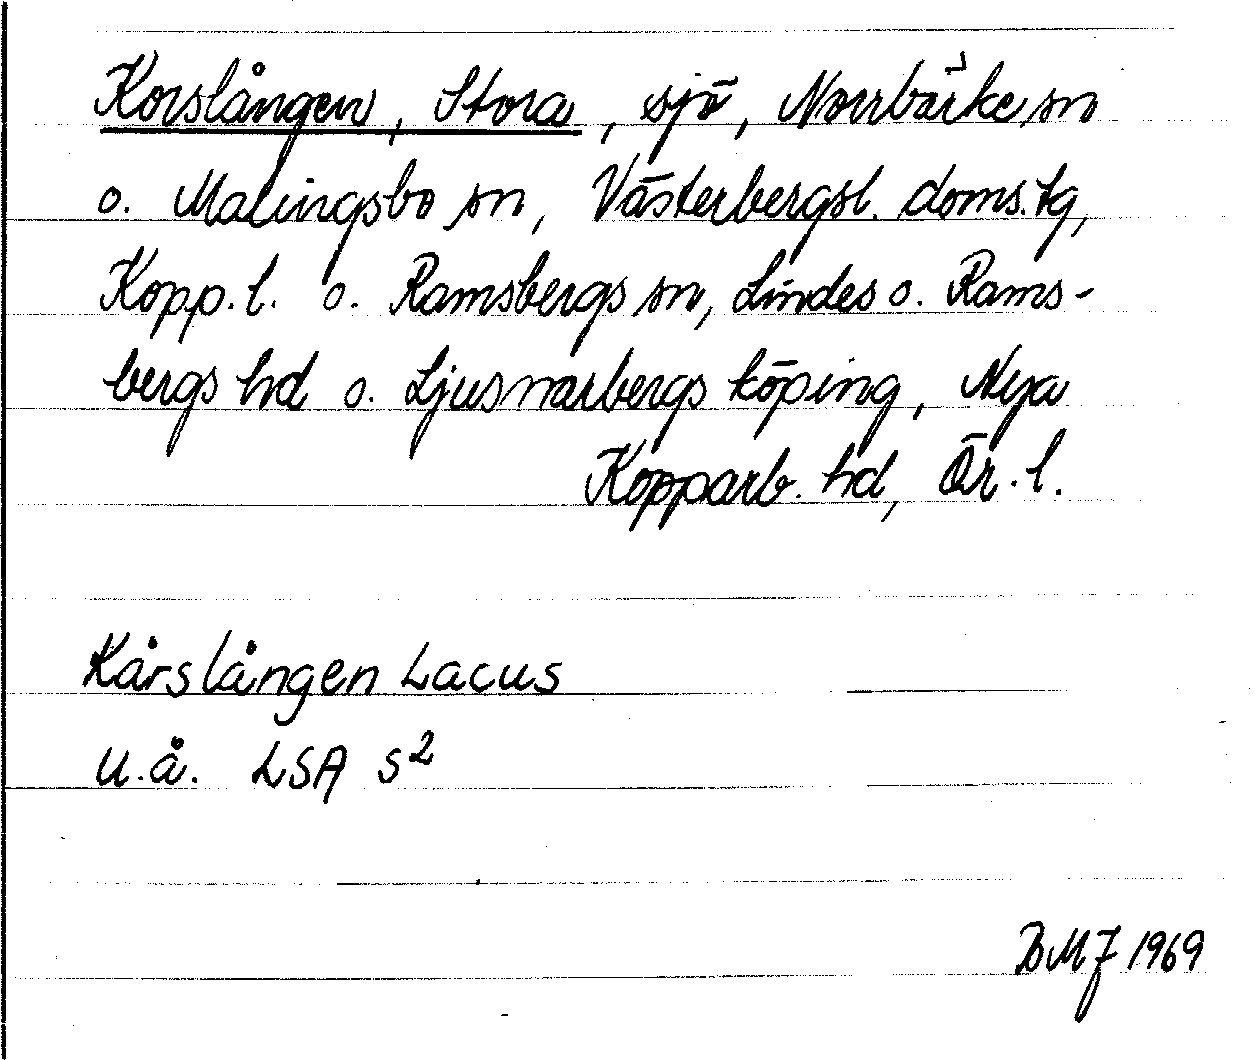 Korslången, Stora, sjö, Norrbärke sn
o. Malingsbo sn, Västerbergsl. doms.tg,
Kopp.l. o. Ramsbergs sn, Lindes o. Rams-
bergs hd o. Ljusnarbergs köping, Nya
Kopparb. hd, Ör.l.
Kårslången Lacus
u.å. LSA S²
BMJ 1969